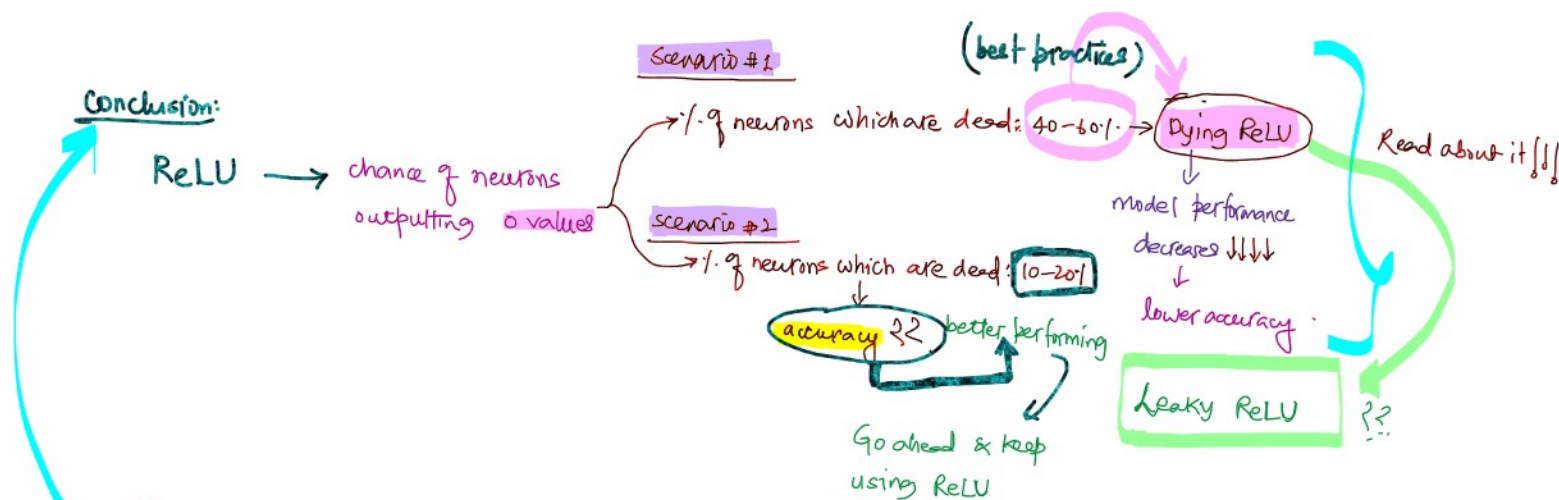 Conclusion:
ReLU → chance of neurons
outputting 0 values
Scenario #1
% of neurons which are dead: 40-60% → Dying ReLU
(best practices)
model performance
decreases ↓↓↓↓
↓
lower accuracy.
Read about it !!!
scenario #2
% of neurons which are dead: 10-20%
accuracy ??
better performing
Go ahead & keep
using ReLU
Leaky ReLU ??